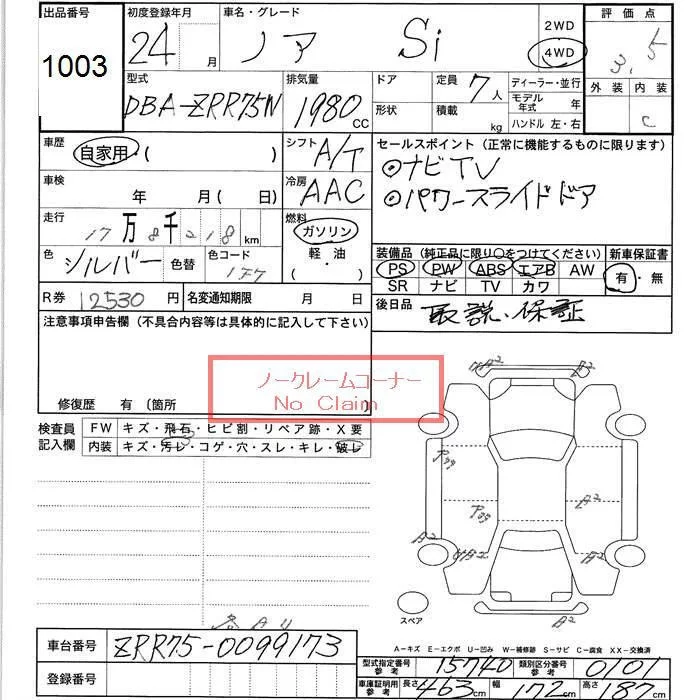 出品番号
1003
初度登録年月
24 月
車名・グレード
ノア Si
2WD
4WD
評価点
3.5
外装 内装
C
型式
DBA-ZRR75W
排気量
1980 CC
ドア 定員 7人
形状 積載 kg
ディーラー・並行
モデル年式 年
ハンドル 左・右
車歴
自家用・( )
シフト
A/T
セールスポイント(正常に機能するものに限ります)
◎ナビTV
◎パワースライドドア
車検
年 月( 日)
冷房
AAC
走行
17万8千218km
燃料
ガソリン
軽・油
( ・ )
色
シルバー 色替
色コード
1F7
装備品(純正品に限り○をつけてください)
新車保証書
PS PW ABS エアB AW
SR ナビ TV カワ
有・無
R券 12530 円
名変通知期限 月 日
後日品
取説・保証
注意事項申告欄(不具合内容等は具体的に記入して下さい)
ノークレームコーナー
No Claim
修復歴 有 〔箇所 〕
検査員記入欄
FW キズ・飛石・ヒビ割・リペア跡・X要
内装 キズ・汚レ・コゲ・穴・スレ・キレ・破レ
A2
A2
A2
A2
スペア
A2
車台番号
ZRR75-0099173
登録番号
A-キズ E-エクボ U-凹み W-補修跡 S-サビ C-腐食 XX-交換済
型式指定番号参考 15740
類別区分番号参考 0101
車庫証明用参考 長さ 463cm 幅 172cm 高さ 187cm